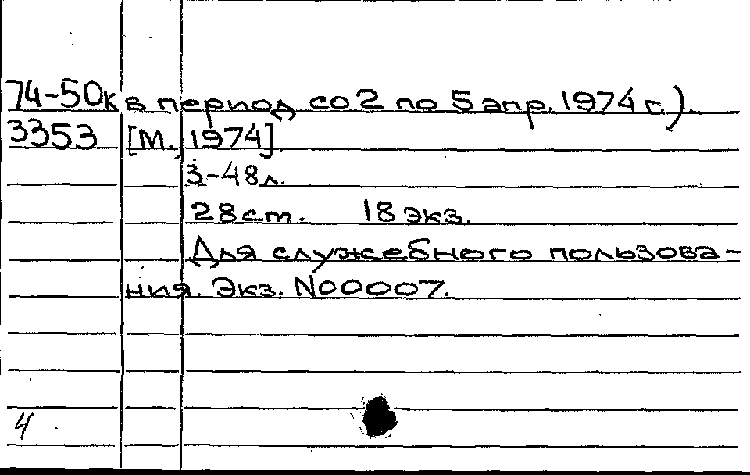 74-50к в период со 2 по 5 апр. 1974 г.).
3353 [М., 1974]
3-48л.
28 см. 18 экз.
Для служебного пользова-
ния. Экз. №00007.
4